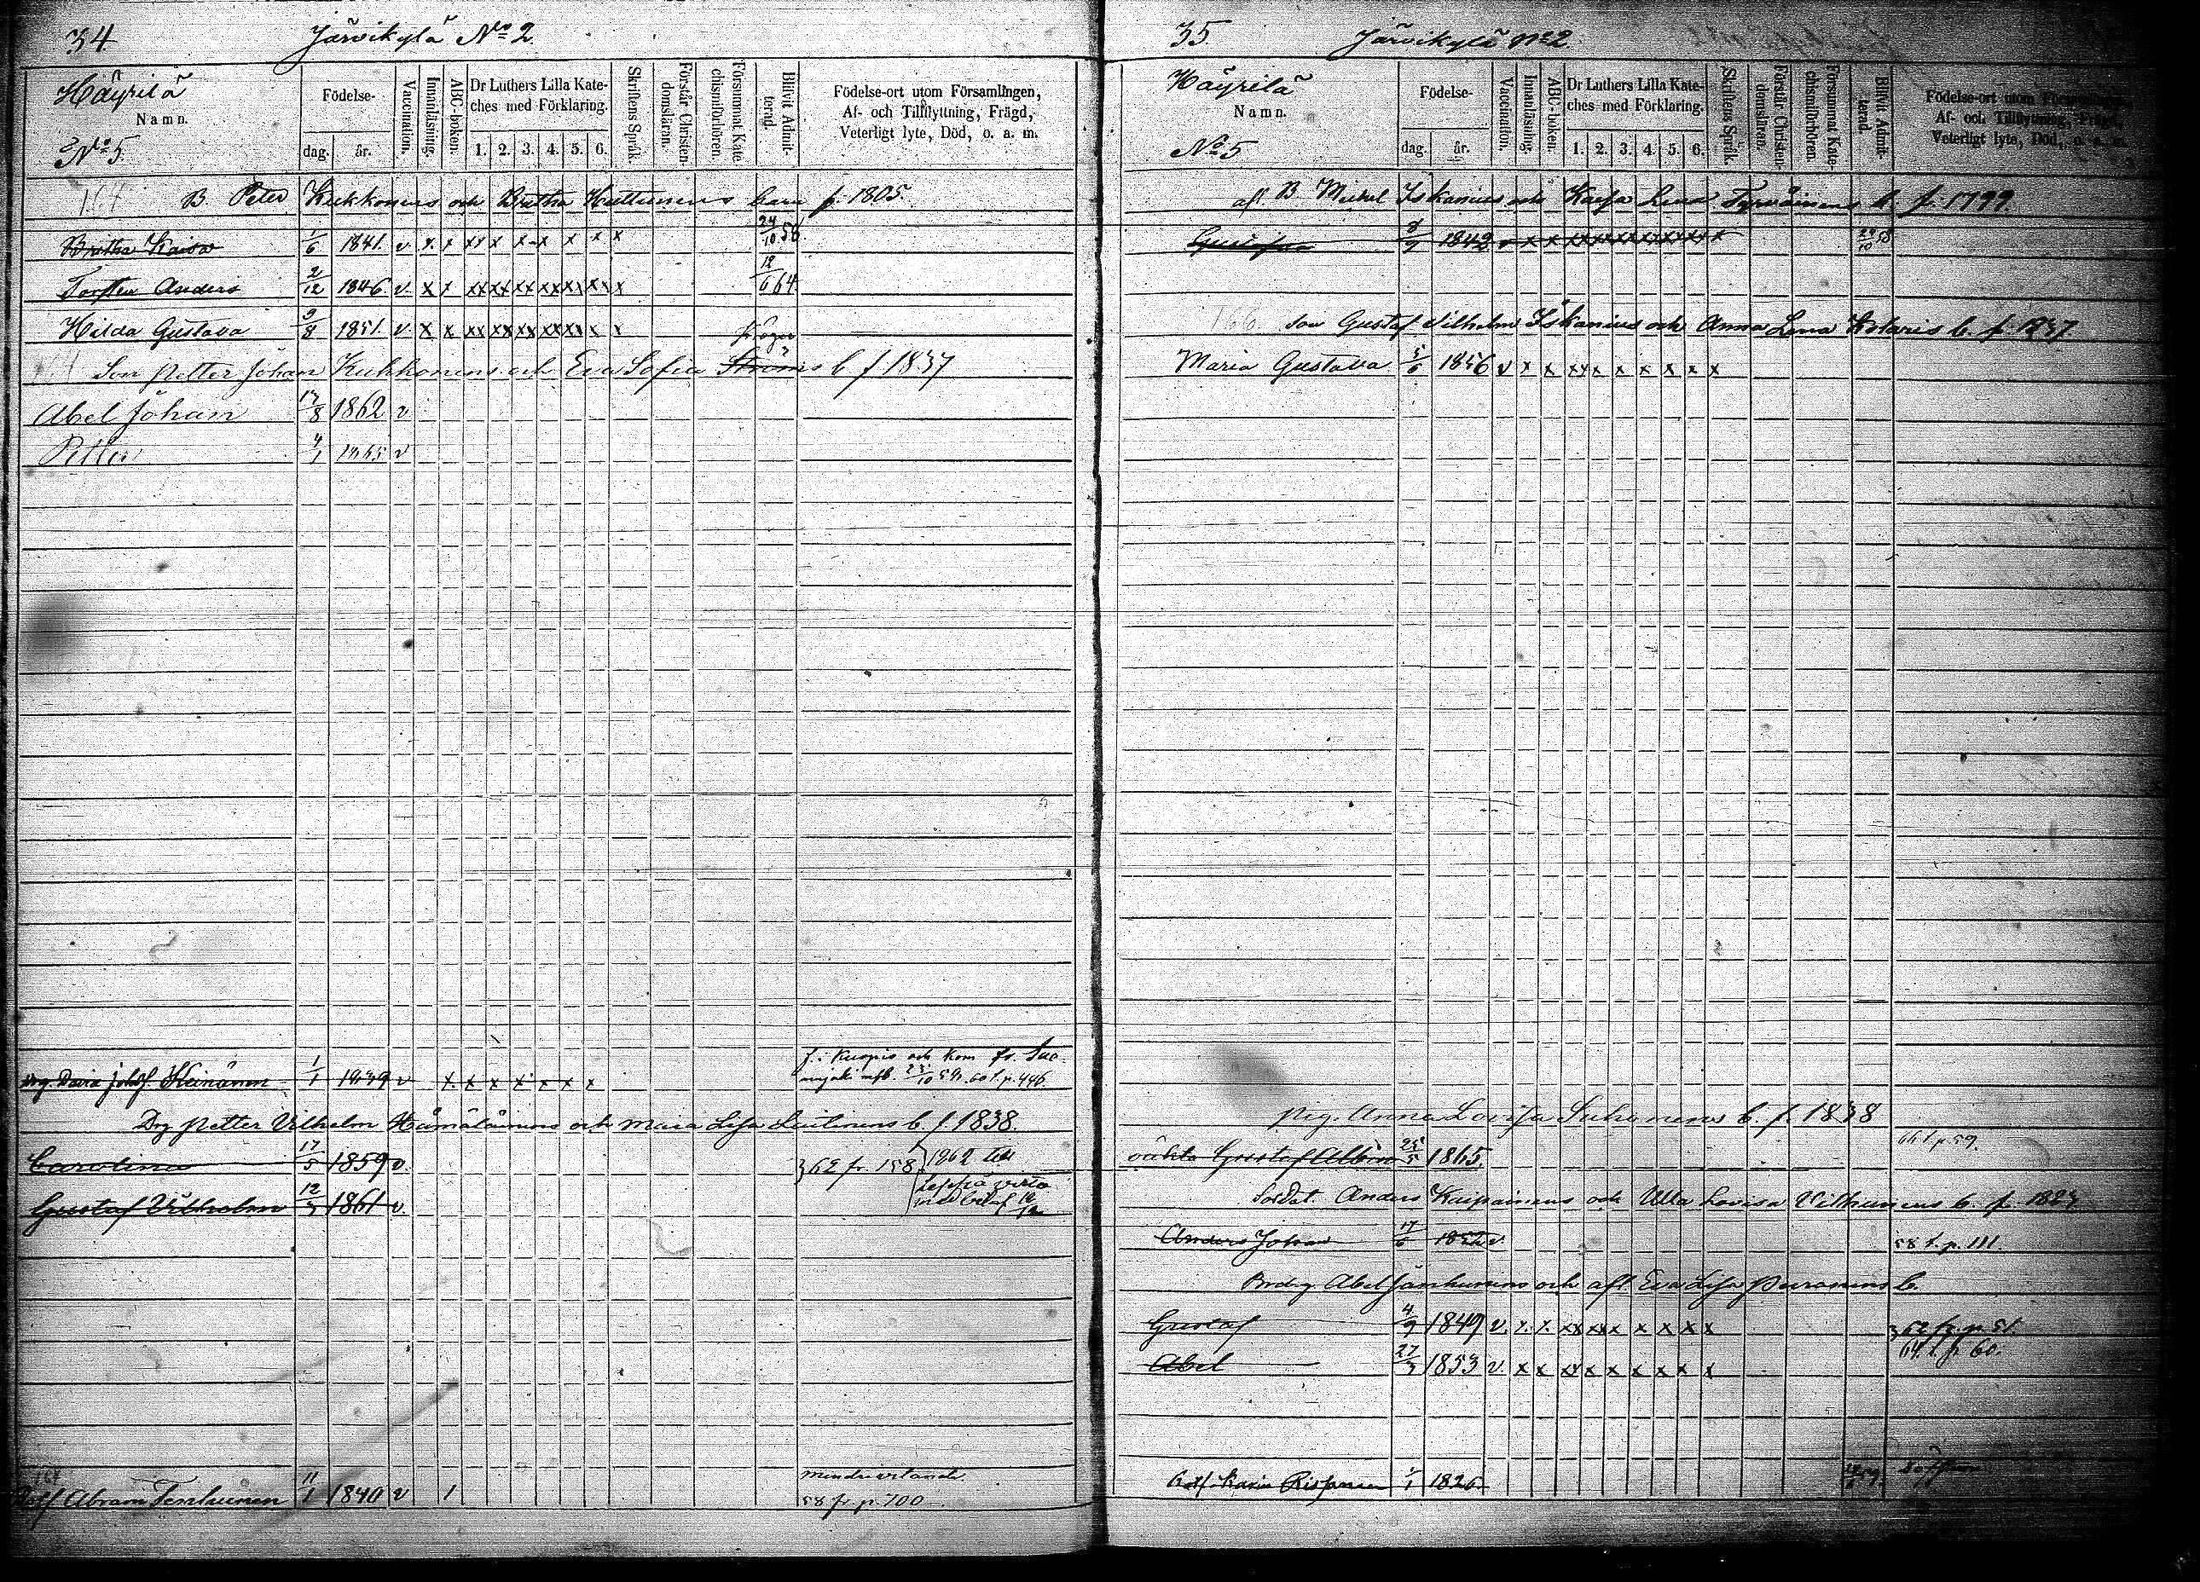 34
Järvikylä No 2
Häyrilä
Namn.
No 5.
Födelse-
dag.
år.
Vaccination.
Innanläsning.
ABC-boken.
Dr Luthers Lilla Kate-
ches med Förklaring.
1. 2. 3. 4. 5. 6.
Skriftens Språk.
Förstår Christen-
domsläran.
Försummat Kate-
chismiförhören.
Blifvit Admit-
terad.
Födelse-ort utom Församlingen,
Af- och Tillflyttning, Frägd,
Veterligt lyte, Död, o. a. m.
B Peter Kukkonens och Bretha Huttunens barn f. 1805.
Bretha Kaisa 1/6 1841. v x x xx x x x x x x 24/10 58
Torsten Anders 2/12 1846. v x x xx xx xx xx xx xx x 12/6 64
Hilda Gustava 9/8 1851. v x x xx xx xx xx xx x x
Son Petter Johan Kukkonens och Eva Sofia Ströms b f 1837
Abel Johan 17/8 1862 v
Petter 4/1 1865 v
Heinänen 1/1 1839 v x x x x x x x
f. i Kuopio och kom fr.
Drg Petter Vilhelm Hämäläinens och Maria Lisa b. f. 1838.
Carolina 17/5 1859 v. 62 fr. 158 1862 till
Gustaf Vilhelm 12/3 1861 v
Abram Tenhunen 11/1 1840 v 1
mindre vetande
58 fr. p. 700
35
Järvikylä No 2
Häyrilä
Namn.
No 5
Födelse-
dag.
år.
Vaccination.
Innanläsning.
ABC-boken.
Dr Luthers Lilla Kate-
ches med Förklaring.
1. 2. 3. 4. 5. 6.
Skriftens Språk.
Förstår Christen-
domsläran.
Försummat Kate-
chismiförhören.
Blifvit Admit-
terad.
Födelse-ort utom Församlingen,
Af- och Tillflyttning, Frägd,
Veterligt lyte, Död, o. a. m.
afl. B Mickel Iskanius och Kaisa Lena Tyrväinens b. f. 1799.
Gustafva 8/9 1842 v x x xx xx xx xx xx xx x 24/10 58
166 son Gustaf Vilhelm Iskanius och Anna Lena Kolaris b. f. 1837
Maria Gustava 5/6 1856 v x x xx x x x x x x
pig. Anna Lovisa Suhonens b. f. 1838
oäkta Gustaf Albin 25/5 1865. 66 t. p. 59.
Soldat Anders Kaipainens och Ulla Lovisa Vilhunens b. f. 1823
Anders Johan 17/6 v. 58 t. p. 111.
Abel Janhunens och afl. Eva Lisa Puranens b.
Gustaf 4/9 1849 v. x. x. xx xx x x x x x 62 fr. p. 51.
Abel 27/3 1853 v. x x xx x x x x x x 64 t. p. 60.
1/1 1826.